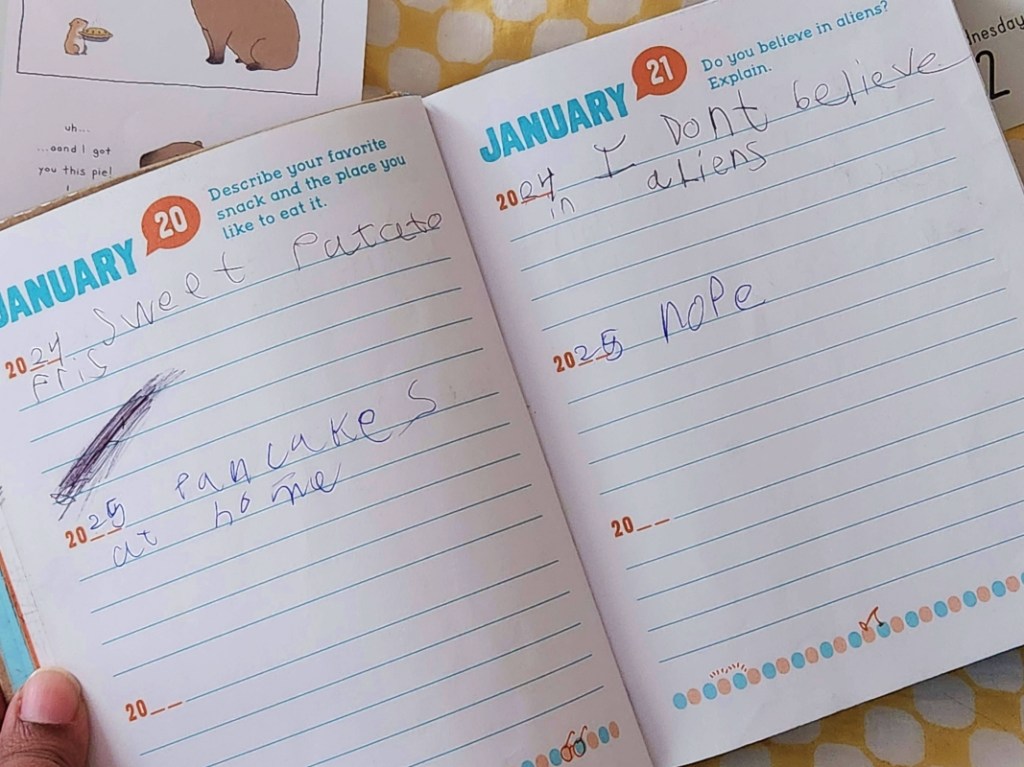 uh...
...aand I got
you this pie!
JANUARY 20
Describe your favorite
snack and the place you
like to eat it.
2024 Sweet Patato
Fris
2025 Pancakes
at home
20__
JANUARY 21
Do you believe in aliens?
Explain.
2024 I Dont believe
in aliens
2025 nope
20__
nesday
2